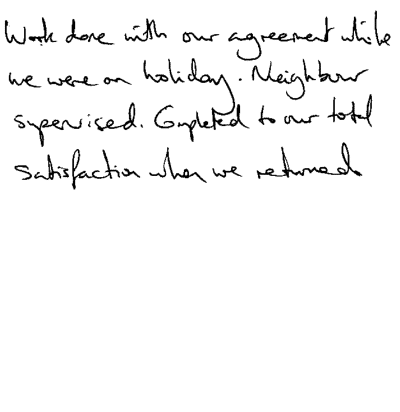 Work done with our agreement while
we were on holiday. Neighbour
supervised. Completed to our total
satisfaction when we returned.